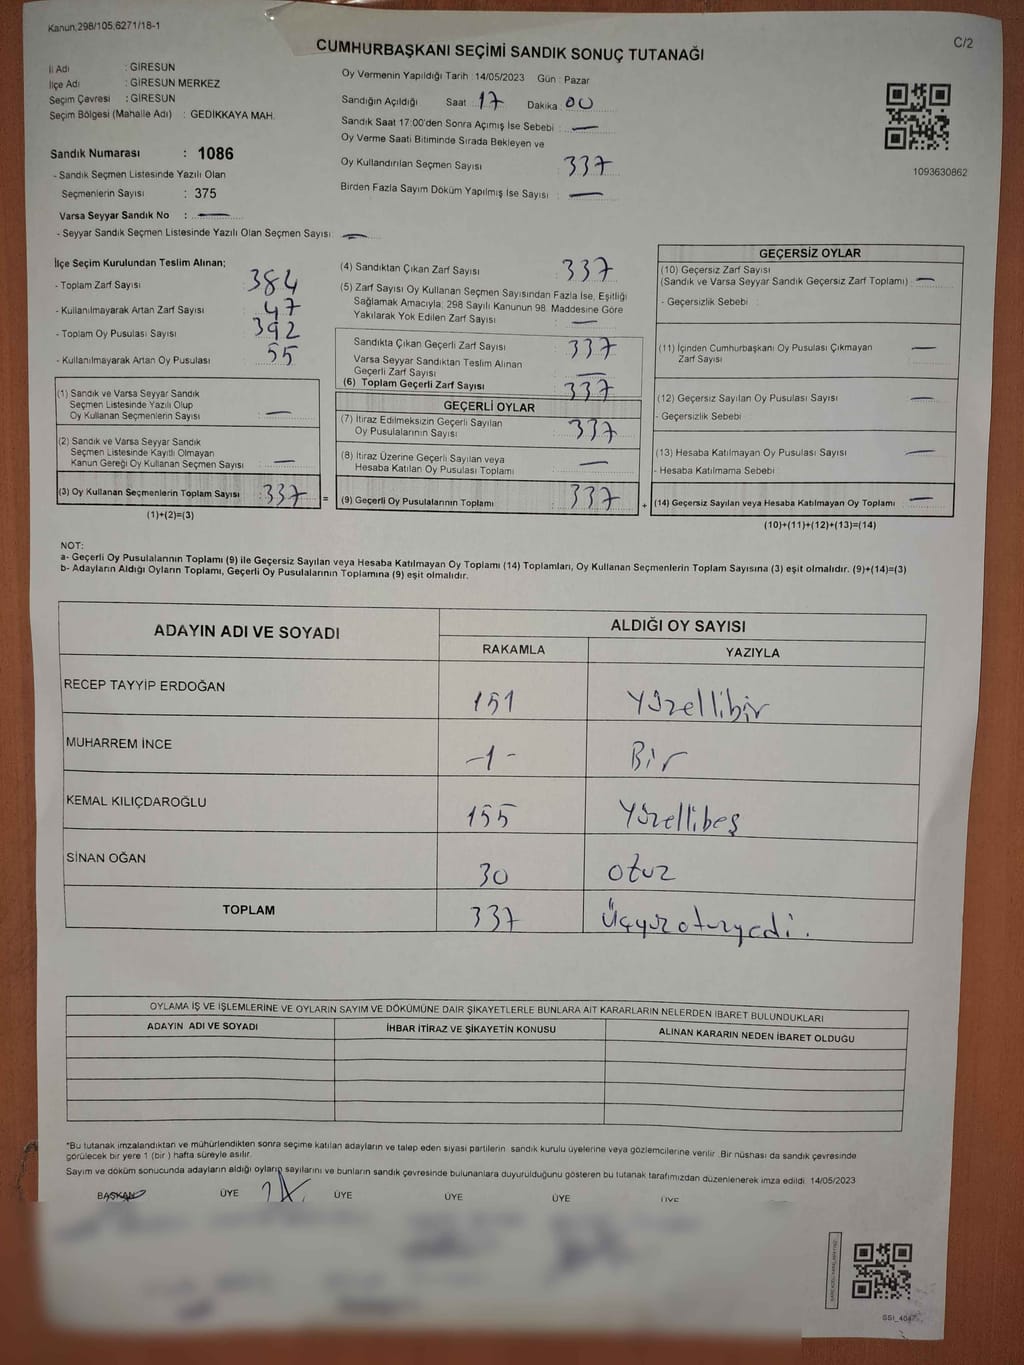 Kanun,298/105,6271/18-1
C/2
CUMHURBAŞKANI SEÇİMİ SANDIK SONUÇ TUTANAĞI
İl Adı : GİRESUN
İlçe Adı : GİRESUN MERKEZ
Seçim Çevresi : GİRESUN
Seçim Bölgesi (Mahalle Adı) : GEDİKKAYA MAH.
Sandık Numarası : 1086
- Sandık Seçmen Listesinde Yazılı Olan
Seçmenlerin Sayısı : 375
Varsa Seyyar Sandık No : —
- Seyyar Sandık Seçmen Listesinde Yazılı Olan Seçmen Sayısı: —
Oy Vermenin Yapıldığı Tarih : 14/05/2023 Gün : Pazar
Sandığın Açıldığı Saat 17 Dakika 00
Sandık Saat 17:00'den Sonra Açımış İse Sebebi : —
Oy Verme Saati Bitiminde Sırada Bekleyen ve
Oy Kullandırılan Seçmen Sayısı 337
Birden Fazla Sayım Döküm Yapılmış İse Sayısı : —
1093630862
İlçe Seçim Kurulundan Teslim Alınan;
- Toplam Zarf Sayısı : 384
- Kullanılmayarak Artan Zarf Sayısı : 47
- Toplam Oy Pusulası Sayısı : 392
- Kullanılmayarak Artan Oy Pusulası : 55
(1) Sandık ve Varsa Seyyar Sandık
Seçmen Listesinde Yazılı Olup
Oy Kullanan Seçmenlerin Sayısı : —
(2) Sandık ve Varsa Seyyar Sandık
Seçmen Listesinde Kayıtlı Olmayan
Kanun Gereği Oy Kullanan Seçmen Sayısı : —
(3) Oy Kullanan Seçmenlerin Toplam Sayısı : 337 =
(1)+(2)=(3)
(4) Sandıktan Çıkan Zarf Sayısı : 337
(5) Zarf Sayısı Oy Kullanan Seçmen Sayısından Fazla İse, Eşitliği
Sağlamak Amacıyla; 298 Sayılı Kanunun 98. Maddesine Göre
Yakılarak Yok Edilen Zarf Sayısı : —
Sandıkta Çıkan Geçerli Zarf Sayısı : 337
Varsa Seyyar Sandıktan Teslim Alınan
Geçerli Zarf Sayısı : —
(6) Toplam Geçerli Zarf Sayısı : 337
GEÇERLİ OYLAR
(7) İtiraz Edilmeksizin Geçerli Sayılan
Oy Pusulalarının Sayısı : 337
(8) İtiraz Üzerine Geçerli Sayılan veya
Hesaba Katılan Oy Pusulası Toplamı : —
(9) Geçerli Oy Pusulalarının Toplamı : 337 +
GEÇERSİZ OYLAR
(10) Geçersiz Zarf Sayısı
(Sandık ve Varsa Seyyar Sandık Geçersiz Zarf Toplamı) : —
- Geçersizlik Sebebi :
(11) İçinden Cumhurbaşkanı Oy Pusulası Çıkmayan
Zarf Sayısı : —
(12) Geçersiz Sayılan Oy Pusulası Sayısı : —
- Geçersizlik Sebebi :
(13) Hesaba Katılmayan Oy Pusulası Sayısı : —
- Hesaba Katılmama Sebebi :
(14) Geçersiz Sayılan veya Hesaba Katılmayan Oy Toplamı : —
(10)+(11)+(12)+(13)=(14)
NOT:
a- Geçerli Oy Pusulalarının Toplamı (9) ile Geçersiz Sayılan veya Hesaba Katılmayan Oy Toplamı (14) Toplamları, Oy Kullanan Seçmenlerin Toplam Sayısına (3) eşit olmalıdır. (9)+(14)=(3)
b- Adayların Aldığı Oyların Toplamı, Geçerli Oy Pusulalarının Toplamına (9) eşit olmalıdır.
ADAYIN ADI VE SOYADI ALDIĞI OY SAYISI
RAKAMLA YAZIYLA
RECEP TAYYİP ERDOĞAN 151 Yüzellibir
MUHARREM İNCE -1- Bir
KEMAL KILIÇDAROĞLU 155 Yüzellibeş
SİNAN OĞAN 30 otuz
TOPLAM 337 Üçyüzotuzyedi.
OYLAMA İŞ VE İŞLEMLERİNE VE OYLARIN SAYIM VE DÖKÜMÜNE DAİR ŞİKAYETLERLE BUNLARA AİT KARARLARIN NELERDEN İBARET BULUNDUKLARI
ADAYIN ADI VE SOYADI İHBAR İTİRAZ VE ŞİKAYETİN KONUSU ALINAN KARARIN NEDEN İBARET OLDUĞU
*Bu tutanak imzalandıktan ve mühürlendikten sonra seçime katılan adayların ve talep eden siyasi partilerin sandık kurulu üyelerine veya gözlemcilerine verilir. Bir nüshası da sandık çevresinde
görülecek bir yere 1 (bir ) hafta süreyle asılır.
Sayım ve döküm sonucunda adayların aldığı oyların sayılarını ve bunların sandık çevresinde bulunanlara duyurulduğunu gösteren bu tutanak tarafımızdan düzenlenerek imza edildi. 14/05/2023
BAŞKAN ÜYE ÜYE ÜYE ÜYE ÜYE